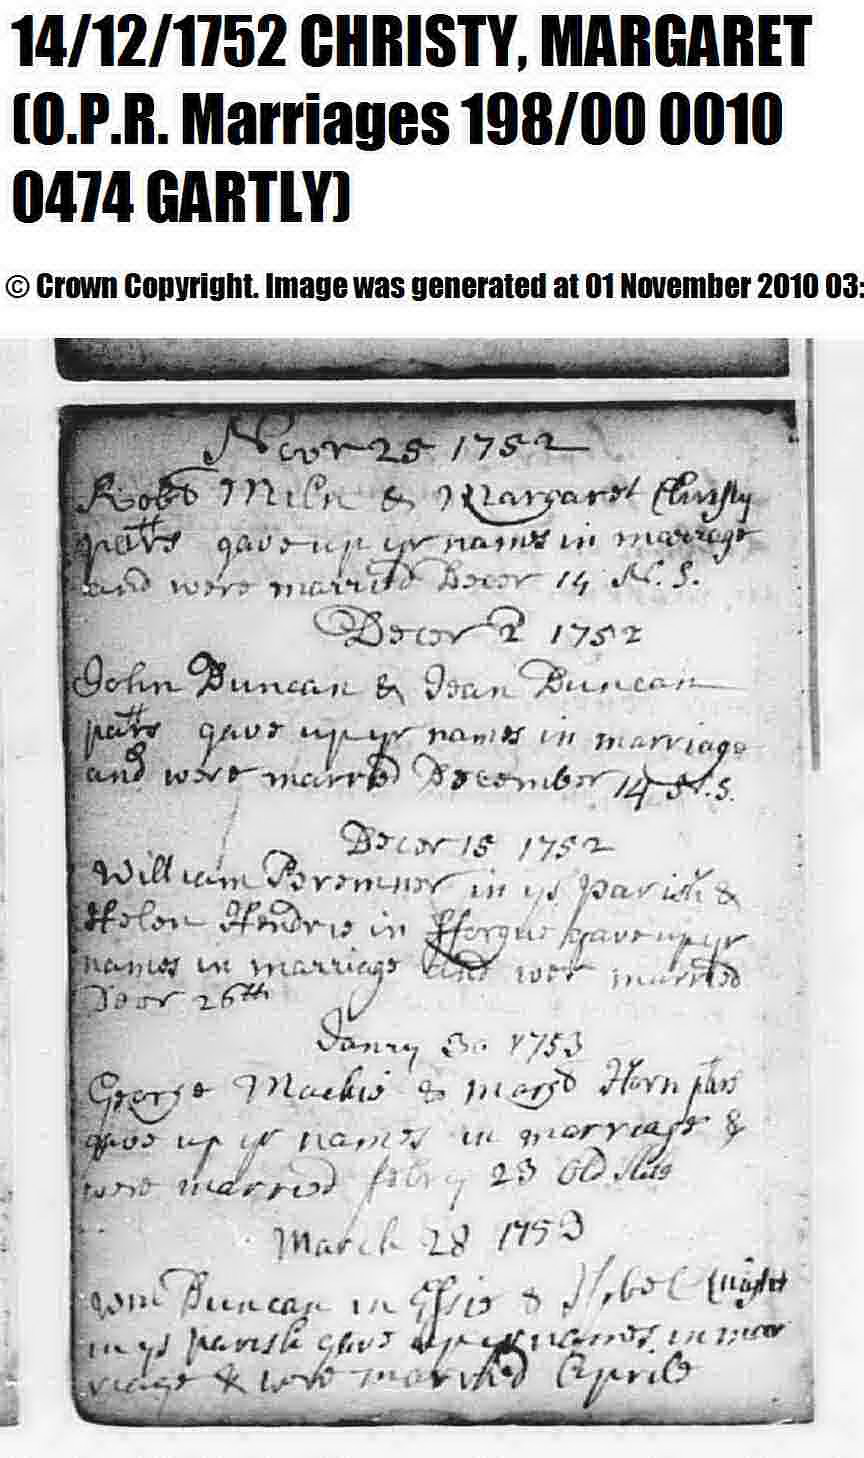 14/12/1752 CHRISTY, MARGARET
(O.P.R. Marriages 198/00 0010
0474 GARTLY)
© Crown Copyright. Image was generated at 01 November 2010 03:
Novr 25 1752
Robt Miln & Margaret Christy
gave up yr names in marriage
and were married Decer 14 N. S.
Decer 2 1752
John Duncan & Jean Duncan
gave up yr names in marriage
and were married December 14 N.S.
Decer 15 1752
William Bremner in ys parish &
Helen Hendrie in fforgue gave up yr
names in marriage and wer married
Decr 26th
Janry 30 1753
George Mackie & Margt Horn
gave up yr names in marriage &
were married febry 23 Old Stile
March 28 1753
Wm Duncan in Essie & Isobel
in ys parish gave up yr names in mar
riage & were married Aprile